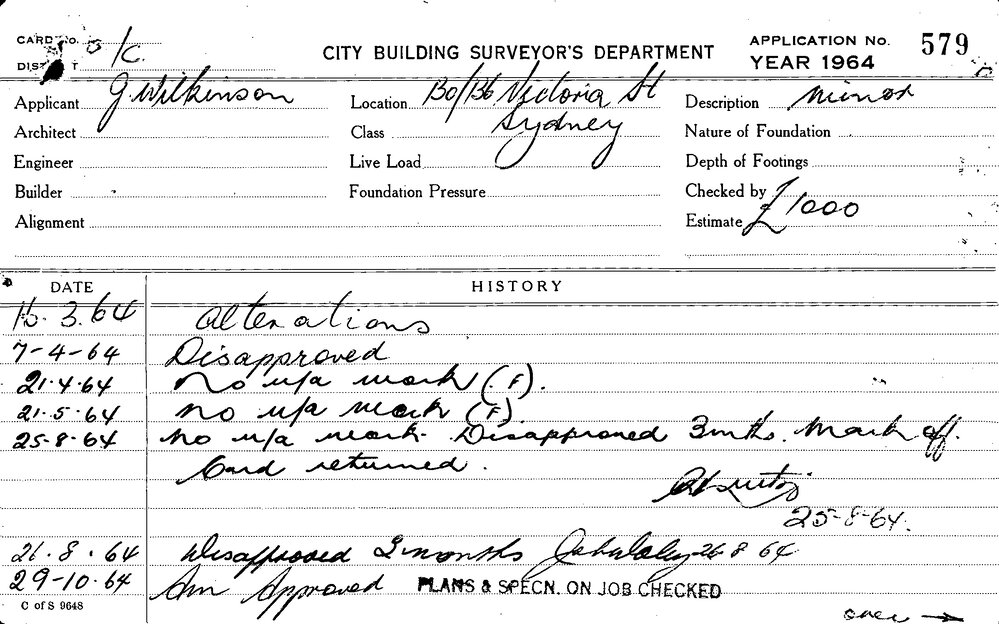 CARD No. o/c.
CITY BUILDING SURVEYOR'S DEPARTMENT
APPLICATION No. 579
YEAR 1964
Applicant J. Wilkinson
Location 130/136 Victoria St
Sydney
Description minor
Architect
Class
Nature of Foundation
Engineer
Live Load
Depth of Footings
Builder
Foundation Pressure
Checked by
Alignment
Estimate £1000
DATE
HISTORY
16.3.64 Alterations
7-4-64 Disapproved
21.4.64 No u/a work (F).
21.5.64 no u/a work (F)
25-8-64 no u/a work. Disapproved 3mths. Mark off.
Card returned.
25-8-64.
26.8.64 Disapproved 3 months 26 8 64
29-10.64 Am Approved PLANS & SPECN. ON JOB CHECKED
C of S 9648
over →